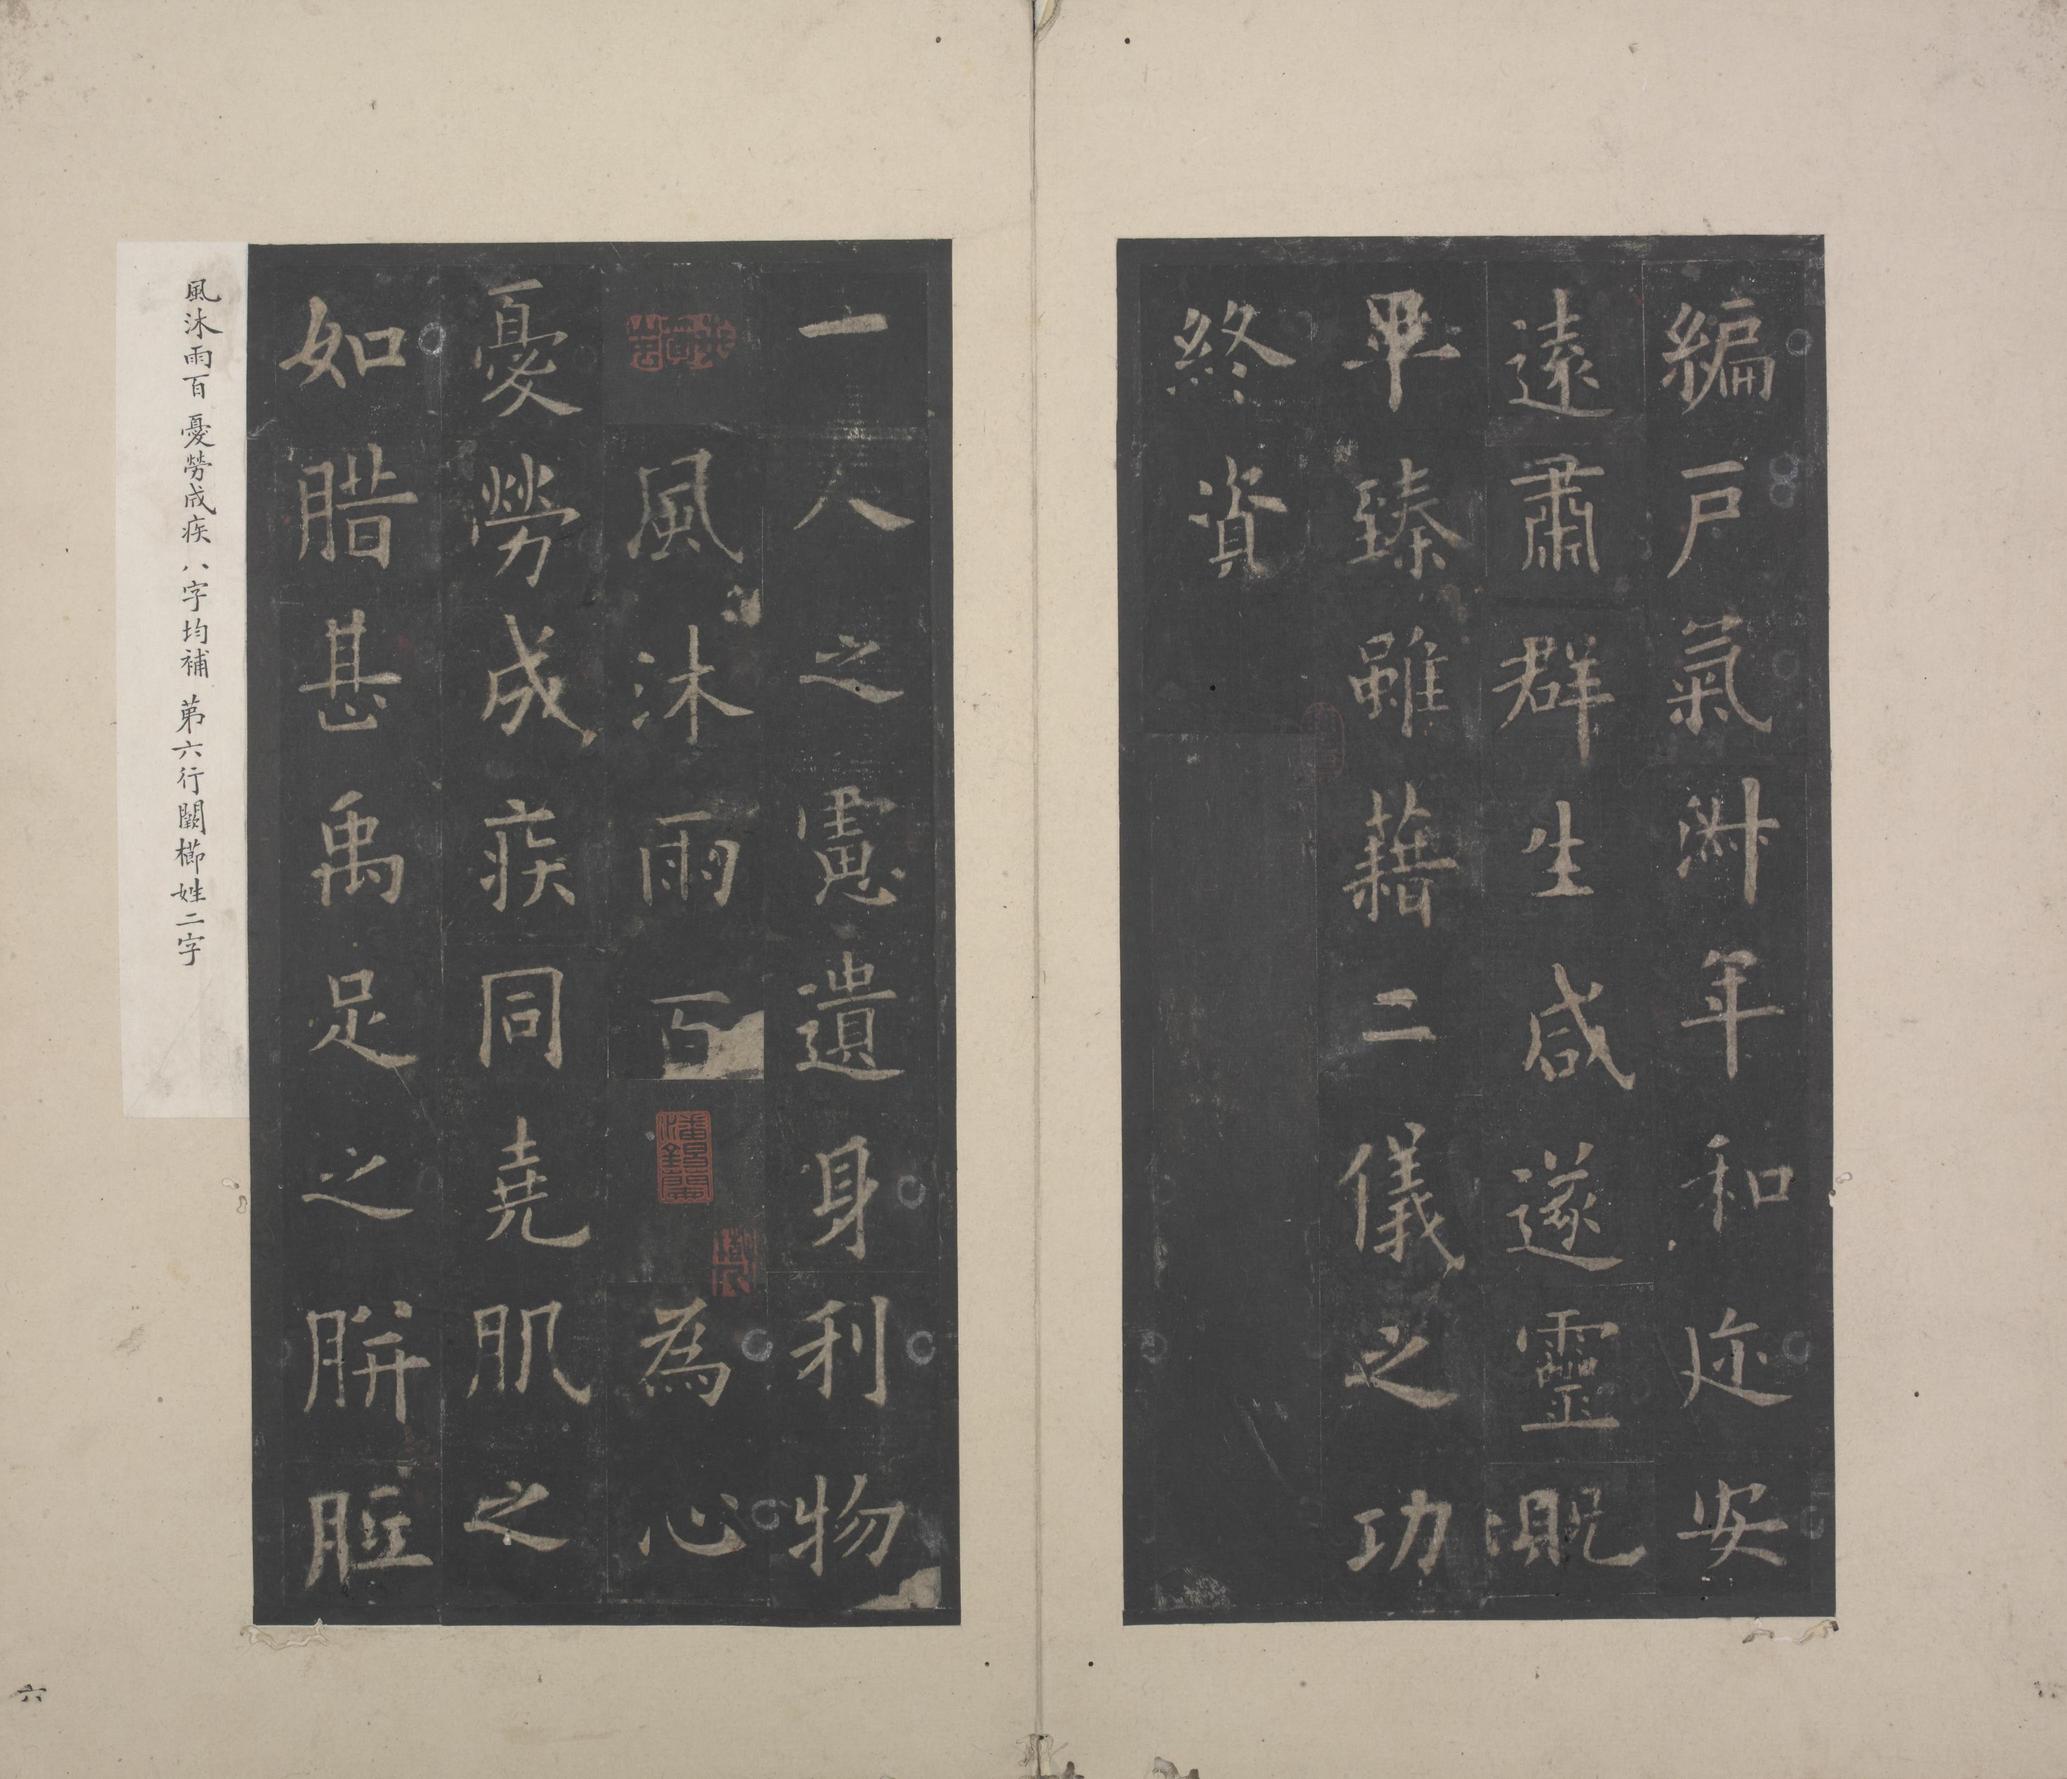 編戶氣淋年和迩安
遠肅群生咸遂靈貺
畢臻雖藉二儀之功
終資
一人之慮遺身利物
風沐雨百
為心
憂勞成疾同堯肌之
如腊甚禹足之胼胝
風沐雨百憂勞成疾八字均補第六行闕櫛姓二字
六